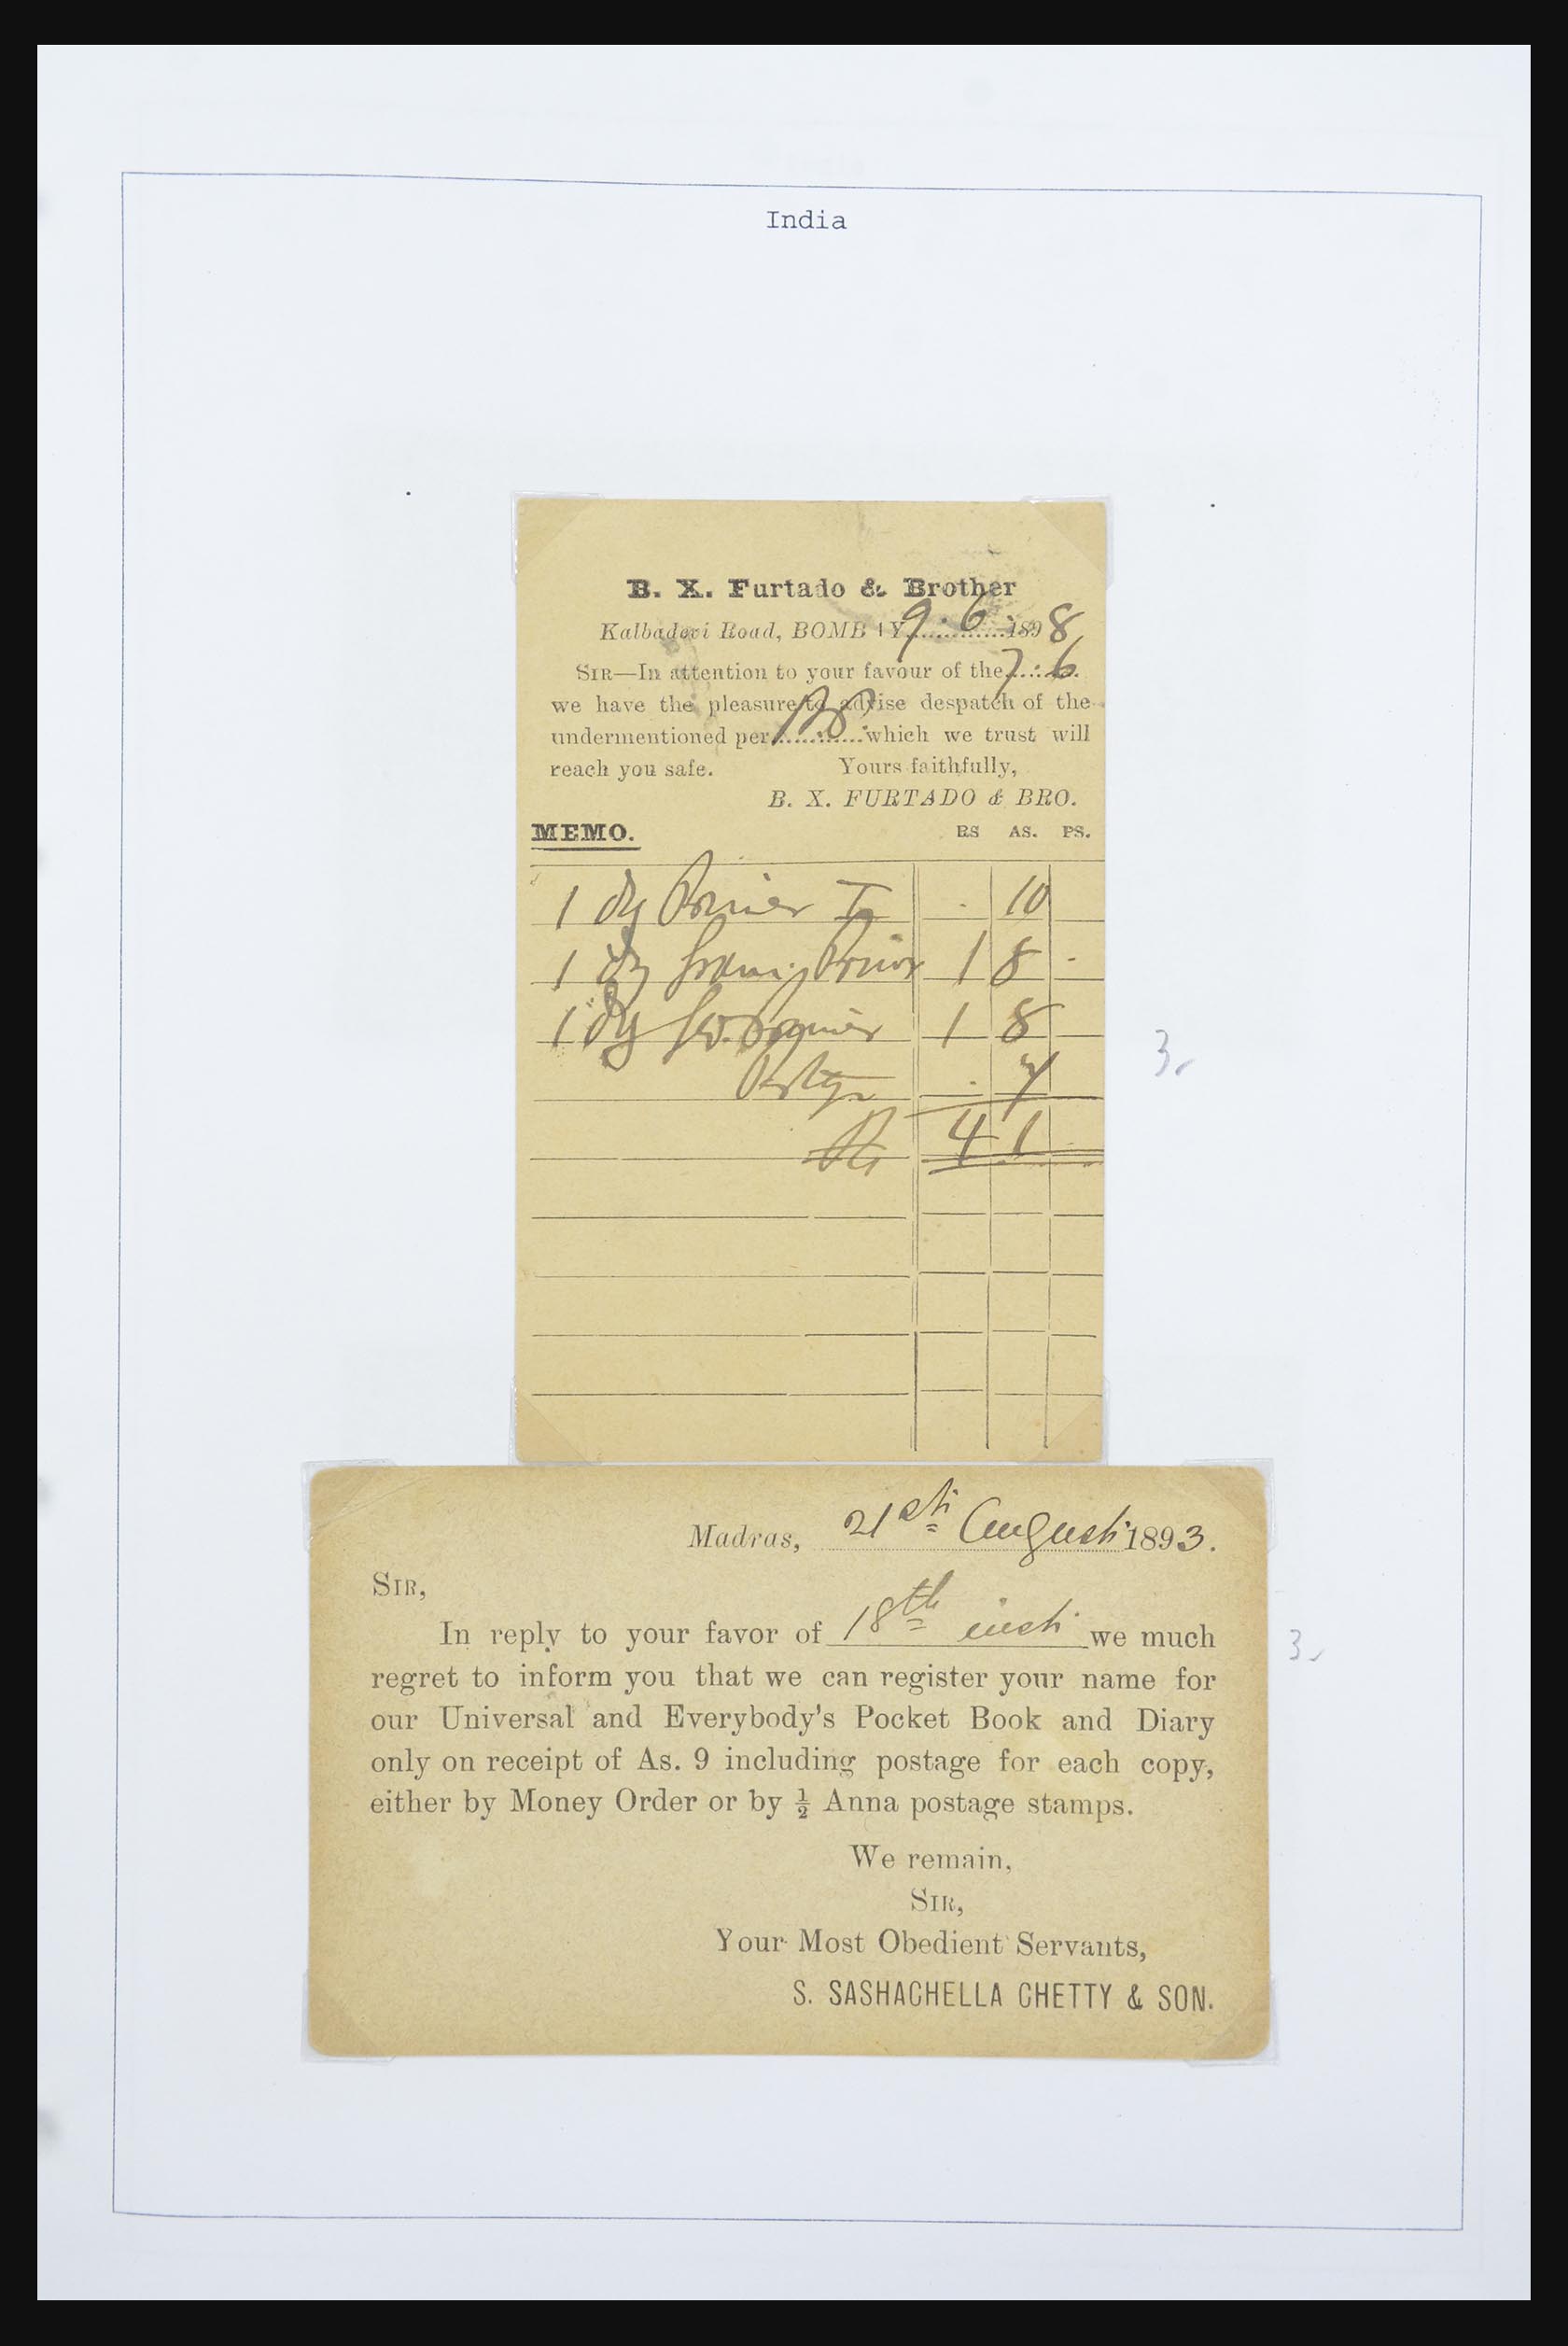 India
B. X. Furtado & Brother
Kalbadevi Road, BOMBAY 9.6 1898
SIR—In attention to your favour of the 7.6.
we have the pleasure to advise despatch of the
undermentioned per which we trust will
reach you safe. Yours faithfully,
B. X. FURTADO & BRO.
MEMO. RS AS. PS.
1 . 10
1 1 8 -
1 1 8
Postage . 7
Rs 4 1
3.
Madras, 21st August 1893.
SIR,
In reply to your favor of 18th inst we much
regret to inform you that we can register your name for
our Universal and Everybody's Pocket Book and Diary
only on receipt of As. 9 including postage for each copy,
either by Money Order or by ½ Anna postage stamps.
We remain,
SIR,
Your Most Obedient Servants,
S. SASHACHELLA CHETTY & SON.
3.